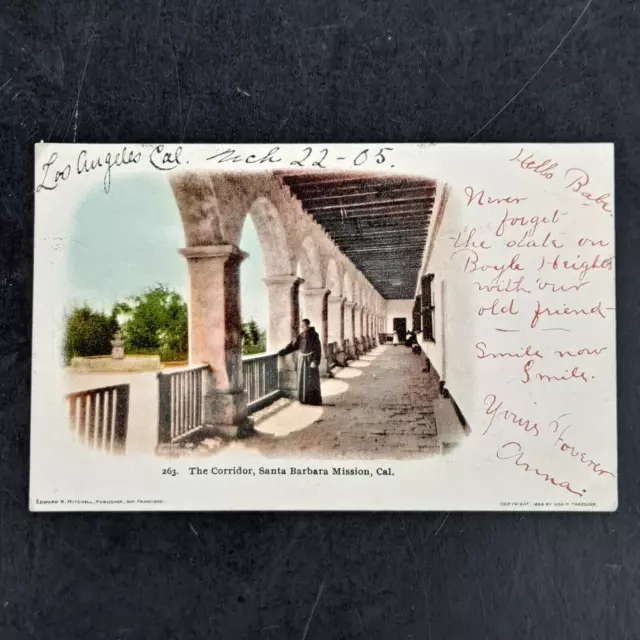 Los Angeles Cal. Mch 22-05.
Hello Babe.
Never
forget
the date on
Boyle Heights
with our
old friend—
Smile now
Smile.
Yours Forever
Anna.
263. The Corridor, Santa Barbara Mission, Cal.
EDWARD H. MITCHELL, PUBLISHER, SAN FRANCISCO.
COPYRIGHT, 1898 BY